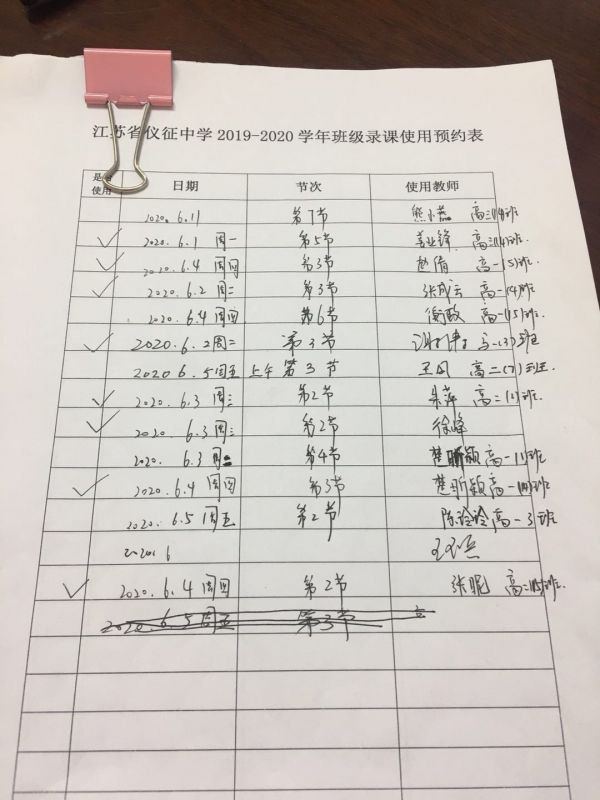 江苏省仪征中学 2019-2020 学年班级录课使用预约表
是 使用 日期 节次 使用教师
2020.6.11 第7节 熊小燕 高二
✓ 2020.6.1 周一 第5节 高二 班
✓ 2020.6.4 周四 第3节 赵倩 高一(5)班
✓ 2020.6.2 周二 第3节 张成云 高一(4)班
2020.6.4 周四 第6节 衡政 高一(5)班
✓ 2020.6.2 周二 第3节 高一(3)班
2020 6.5 周五 上午 第3节 王凤 高二(7)班
✓ 2020.6.3 周三 第2节 朱萍 高二 班
✓ 2020.6.3 周三 第2节 徐峰
2020. 6.3 周三 第4节 楚昕颖 高一 班
✓ 2020.6.4 周四 第3节 楚昕颖 高一 班
2020.6.5 周五 第2节 陈玲玲 高一3班
2020.6
✓ 2020.6.4 周四 第2节 张昵 高二 班
2020.6.5 周五 第3节